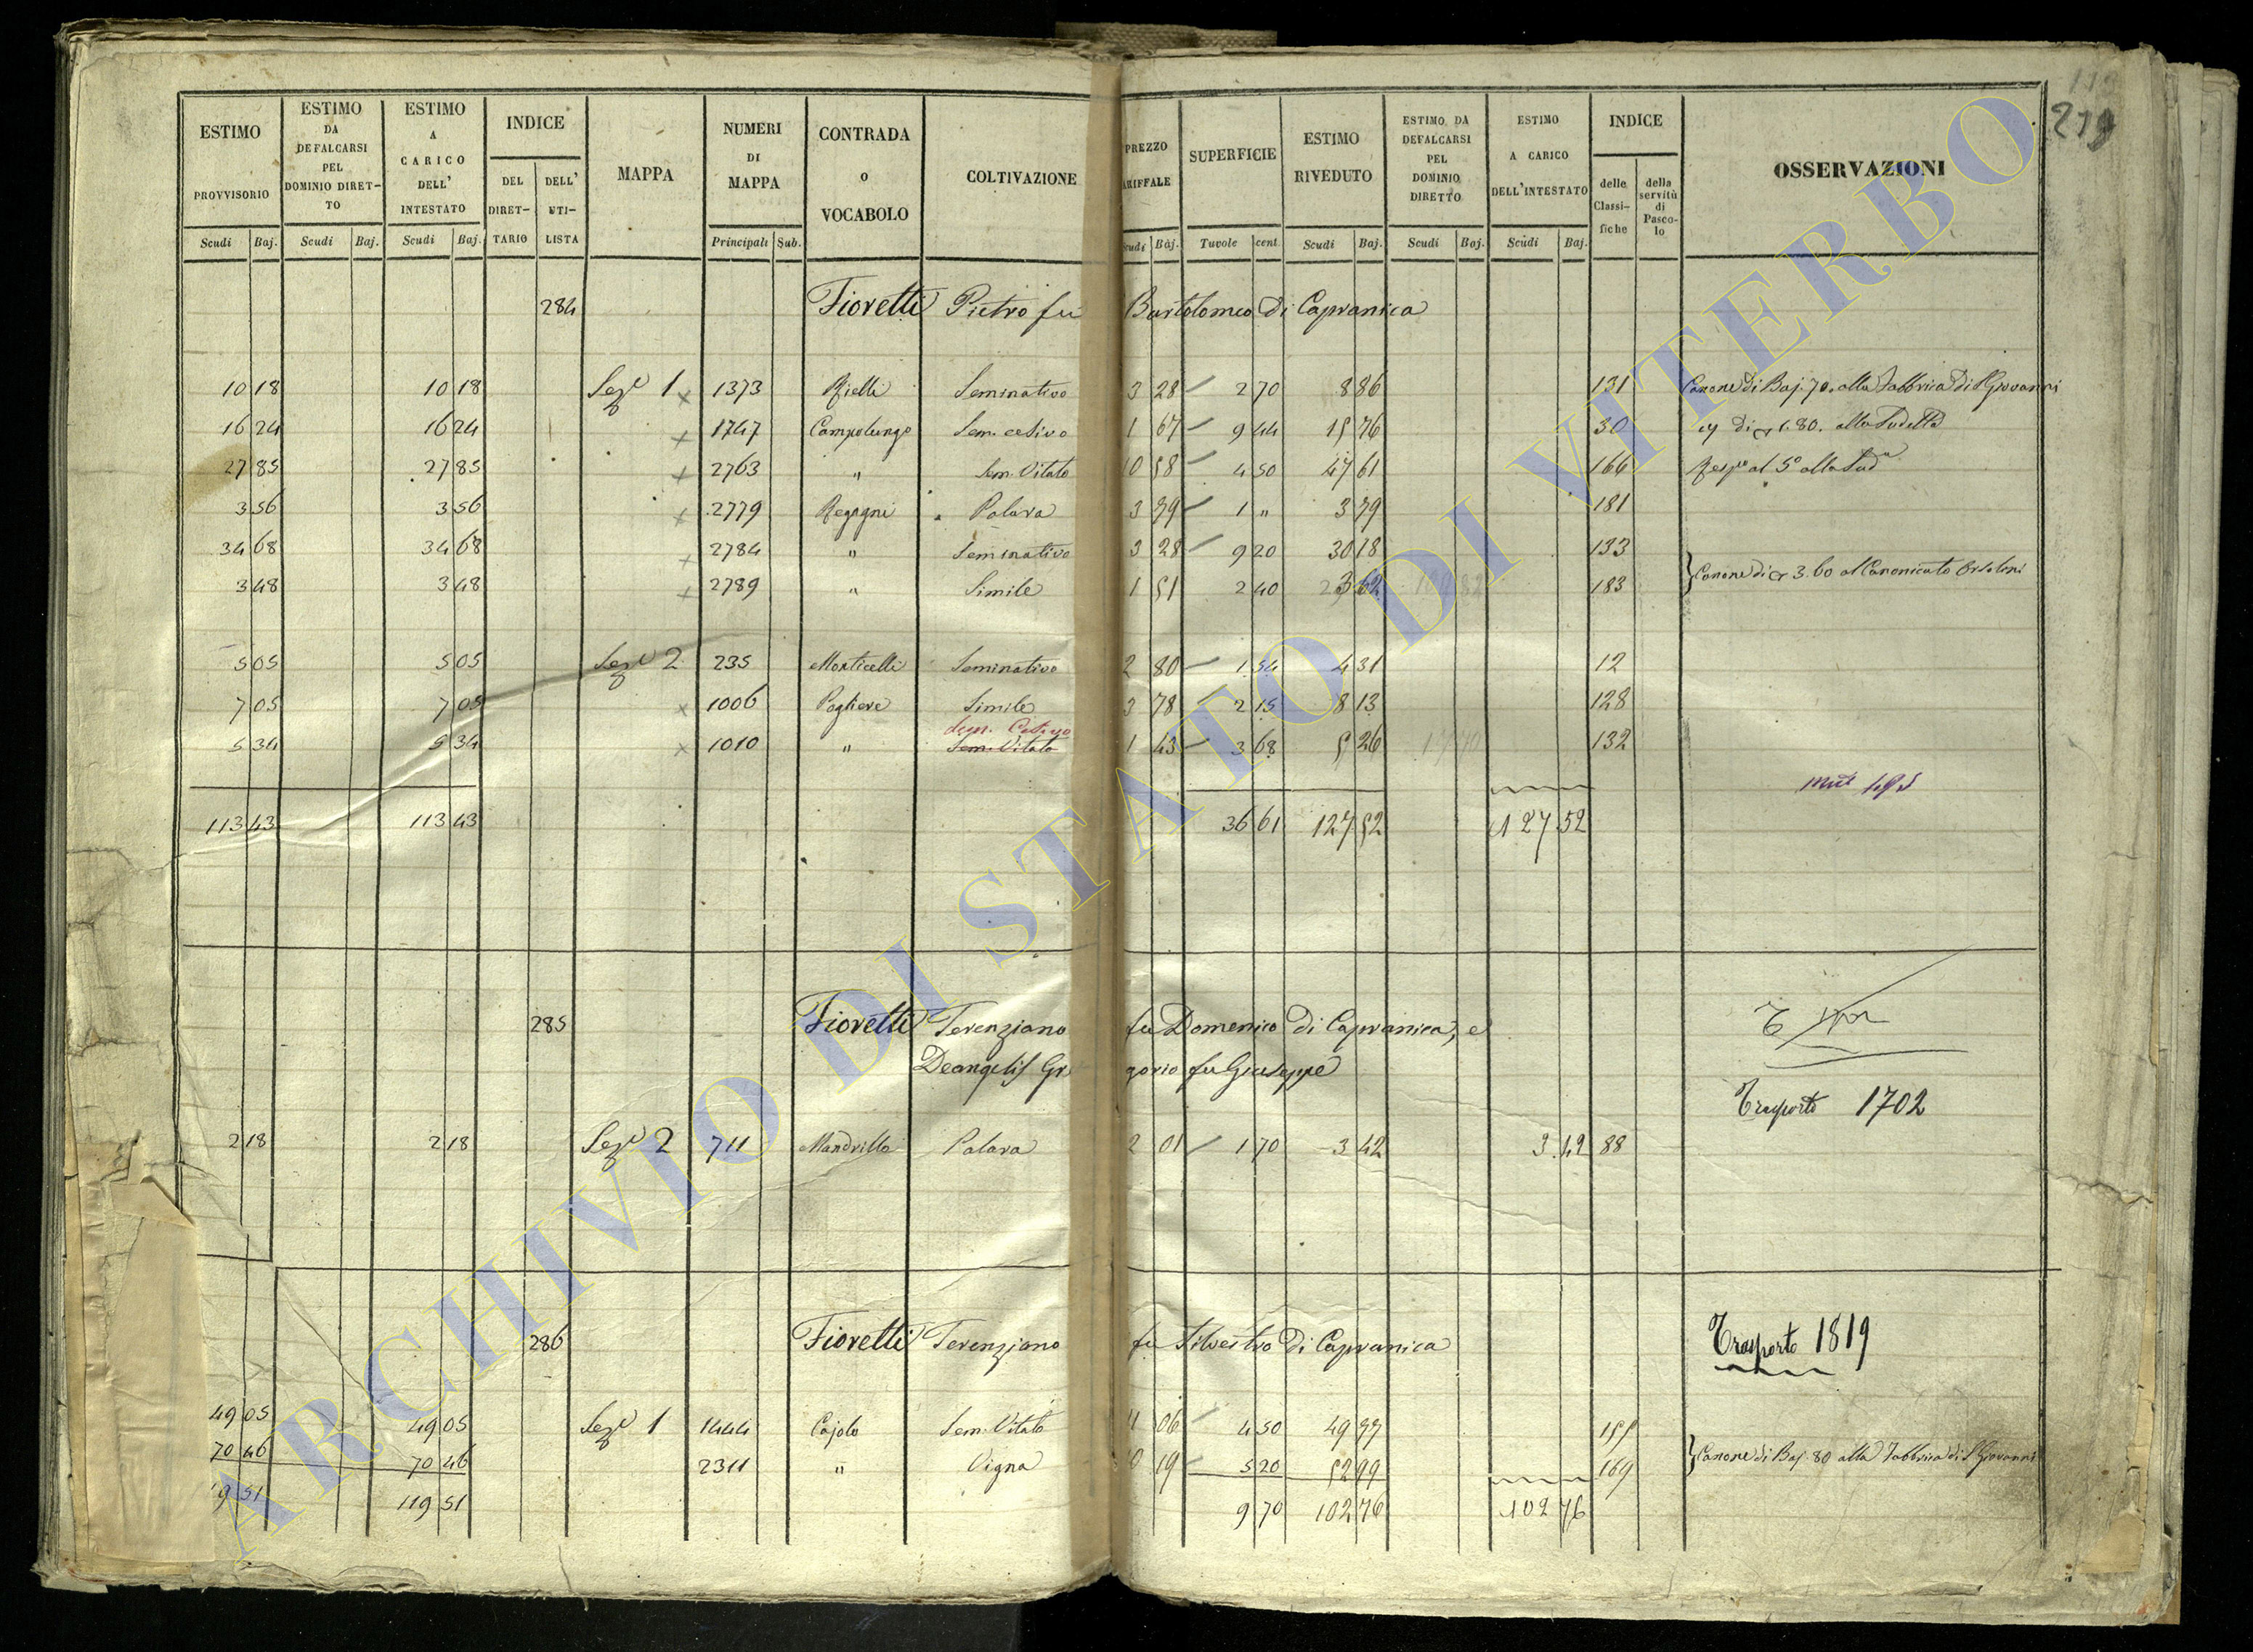 279
ESTIMO PROVVISORIO | ESTIMO DA DEFALCARSI PEL DOMINIO DIRETTO | ESTIMO A CARICO DELL' INTESTATO | INDICE DEL DIRETTARIO | DELL' UTILISTA | MAPPA | NUMERI DI MAPPA | CONTRADA o VOCABOLO | COLTIVAZIONE | PREZZO TARIFFALE | SUPERFICIE | ESTIMO RIVEDUTO | ESTIMO DA DEFALCARSI PEL DOMINIO DIRETTO | ESTIMO A CARICO DELL'INTESTATO | INDICE delle Classifiche | della servitù di Pascolo | OSSERVAZIONI
Scudi Baj. | Scudi Baj. | Scudi Baj. | Principali Sub. | Scudi Baj. | Tavole cent. | Scudi Baj. | Scudi Baj. | Scudi Baj.
284 Fioretti Pietro fu Bartolomeo di Capranica
10 18 | 10 18 | Seze 1 | 1373 | Rielli | Seminativo | 3 28 | 2 70 | 8 86 | 131 | Canone di Baj. 70. alla Fabbrica di S Giovanni
16 24 | 16 24 | 1747 | Campolungo | Sem. cesivo | 1 67 | 9 44 | 15 76 | 30 | di 1. 80. alla Sudetta
27 85 | 27 85 | 2763 | " | Sem. Vitato | 10 58 | 4 50 | 47 61 | 166 | al 5º alla Sud
3 56 | 3 56 | 2779 | Regagni | Palara | 3 79 | 1 " | 3 79 | 181
34 68 | 34 68 | 2784 | " | Seminativo | 3 28 | 9 20 | 30 18 | 133
3 48 | 3 48 | 2789 | " | Simile | 1 51 | 2 40 | 3 62 | 183 | Canone di 3. 60 al Canonicato Orsolini
5 05 | 5 05 | Seze 2 | 235 | Monticelli | Seminativo | 2 80 | 1 54 | 4 31 | 12
7 05 | 7 05 | 1006 | Pogliere | Simile | 3 78 | 2 15 | 8 13 | 128
Sem. Cesivo
5 34 | 5 34 | 1010 | " | Sem. Vitato | 1 43 | 3 68 | 5 26 | 132
113 43 | 113 43 | 36 61 | 127 52 | 127 52
285 Fioretti Terenziano fu Domenico di Capranica, e
Deangelis Gregorio fu Giuseppe
Trasporto 1702
2 18 | 2 18 | Seze 2 | 711 | Mandrillo | Palara | 2 01 | 1 70 | 3 42 | 3 42 | 88
286 Fioretti Terenziano fu Silvestro di Capranica
Trasporto 1819
49 05 | 49 05 | Seze 1 | 1444 | Cajolo | Sem. Vitato | 11 06 | 4 50 | 49 77 | 155
70 46 | 70 46 | 2311 | " | Vigna | 10 19 | 5 20 | 52 99 | 169 | Canone di Baj. 80 alla Fabbrica di S Giovanni
119 51 | 119 51 | 9 70 | 102 76 | 102 76
ARCHIVIO DI STATO DI VITERBO